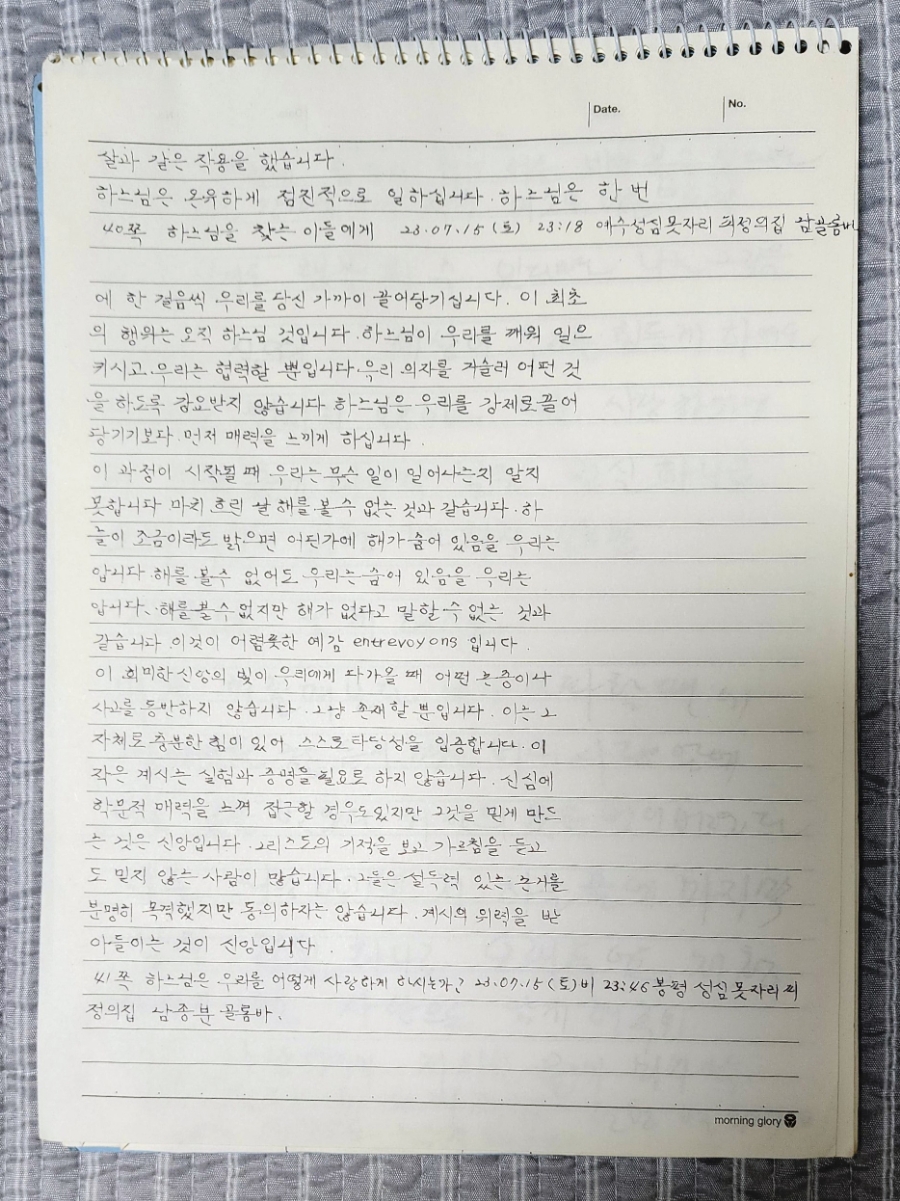 Date.
No.
살과 같은 작용을 했습니다.
하느님은 온유하게 점진적으로 일하십니다. 하느님은 한 번
40쪽 하느님을 찾는 이들에게 23.07.15(토) 23:18 예수성심못자리 피정의집
에 한 걸음씩 우리를 당신 가까이 끌어당기십니다. 이 최초
의 행위는 오직 하느님 것입니다. 하느님이 우리를 깨워 일으
키시고 우리는 협력할 뿐입니다. 우리 의지를 거슬러 어떤 것
을 하도록 강요받지 않습니다 하느님은 우리를 강제로 끌어
당기기보다 먼저 매력을 느끼게 하십니다.
이 과정이 시작될 때 우리는 무슨 일이 일어나는지 알지
못합니다 마치 흐린 날 해를 볼 수 없는 것과 같습니다. 하
늘이 조금이라도 밝으면 어딘가에 해가 숨어 있음을 우리는
압니다 해를 볼 수 없어도 우리는 숨어 있음을 우리는
압니다. 해를 볼 수 없지만 해가 없다고 말할 수 없는 것과
같습니다. 이것이 어렴풋한 예감 entrevoyons 입니다.
이 희미한 신앙의 빛이 우리에게 다가올 때 어떤 논증이나
사고를 동반하지 않습니다. 그냥 존재할 뿐입니다. 이는 그
자체로 충분한 힘이 있어 스스로 타당성을 입증합니다. 이
작은 계시는 실험과 증명을 필요로 하지 않습니다. 신심에
학문적 매력을 느껴 접근할 경우도 있지만 그것을 믿게 만드
는 것은 신앙입니다. 그리스도의 기적을 보고 가르침을 듣고
도 믿지 않는 사람이 많습니다. 그들은 설득력 있는 근거를
분명히 목격했지만 동의하지는 않습니다. 계시의 위력을 받
아들이는 것이 신앙입니다.
41쪽 하느님은 우리를 어떻게 사랑하게 하시는가? 23.07.15(토)비 23:46 봉평 성심못자리 피
정의집 남종분 골롬바.
morning glory